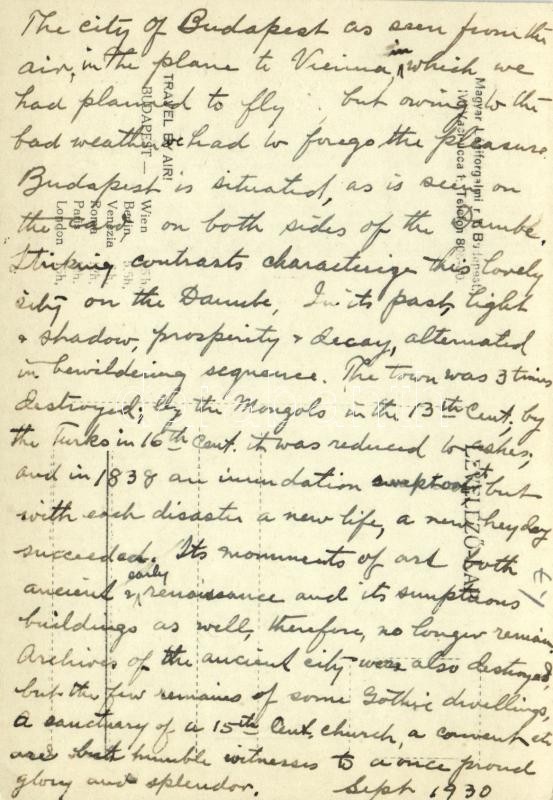 The city of Budapest as seen from the
air, in the plane to Vienna, in which we
had planned to fly, but owing to the
bad weather we had to forego the pleasure.
Budapest is situated, as is seen on
the card on both sides of the Danube.
Striking contrasts characterize this lovely
city on the Danube, In its past, light
& shadow, prosperity & decay, alternated
in bewildering sequence. The town was 3 times
destroyed; by the Mongols in the 13th Cent. by
the Turks in 16th Cent. it was reduced to ashes,
and in 1838 an inundation swept but
with each disaster a new life, a new heyday
succeeded. Its monuments of art both
ancient & early renaissance and its sumptuous
buildings as well, therefore, no longer remain,
Archives of the ancient city were also destroyed,
but the few remains of some Gothic dwellings,
a sanctuary of a 15th Cent. church, a convent etc
are but humble witnesses to a once proud
glory and splendor. Sept 1930
TRAVEL BY AIR!
BUDAPEST —
Wien
Berlin
Venezia
Roma
Paris
London
Magyar Légiforgalmi r.t. Budapest,
LEVELEZŐ-LAP